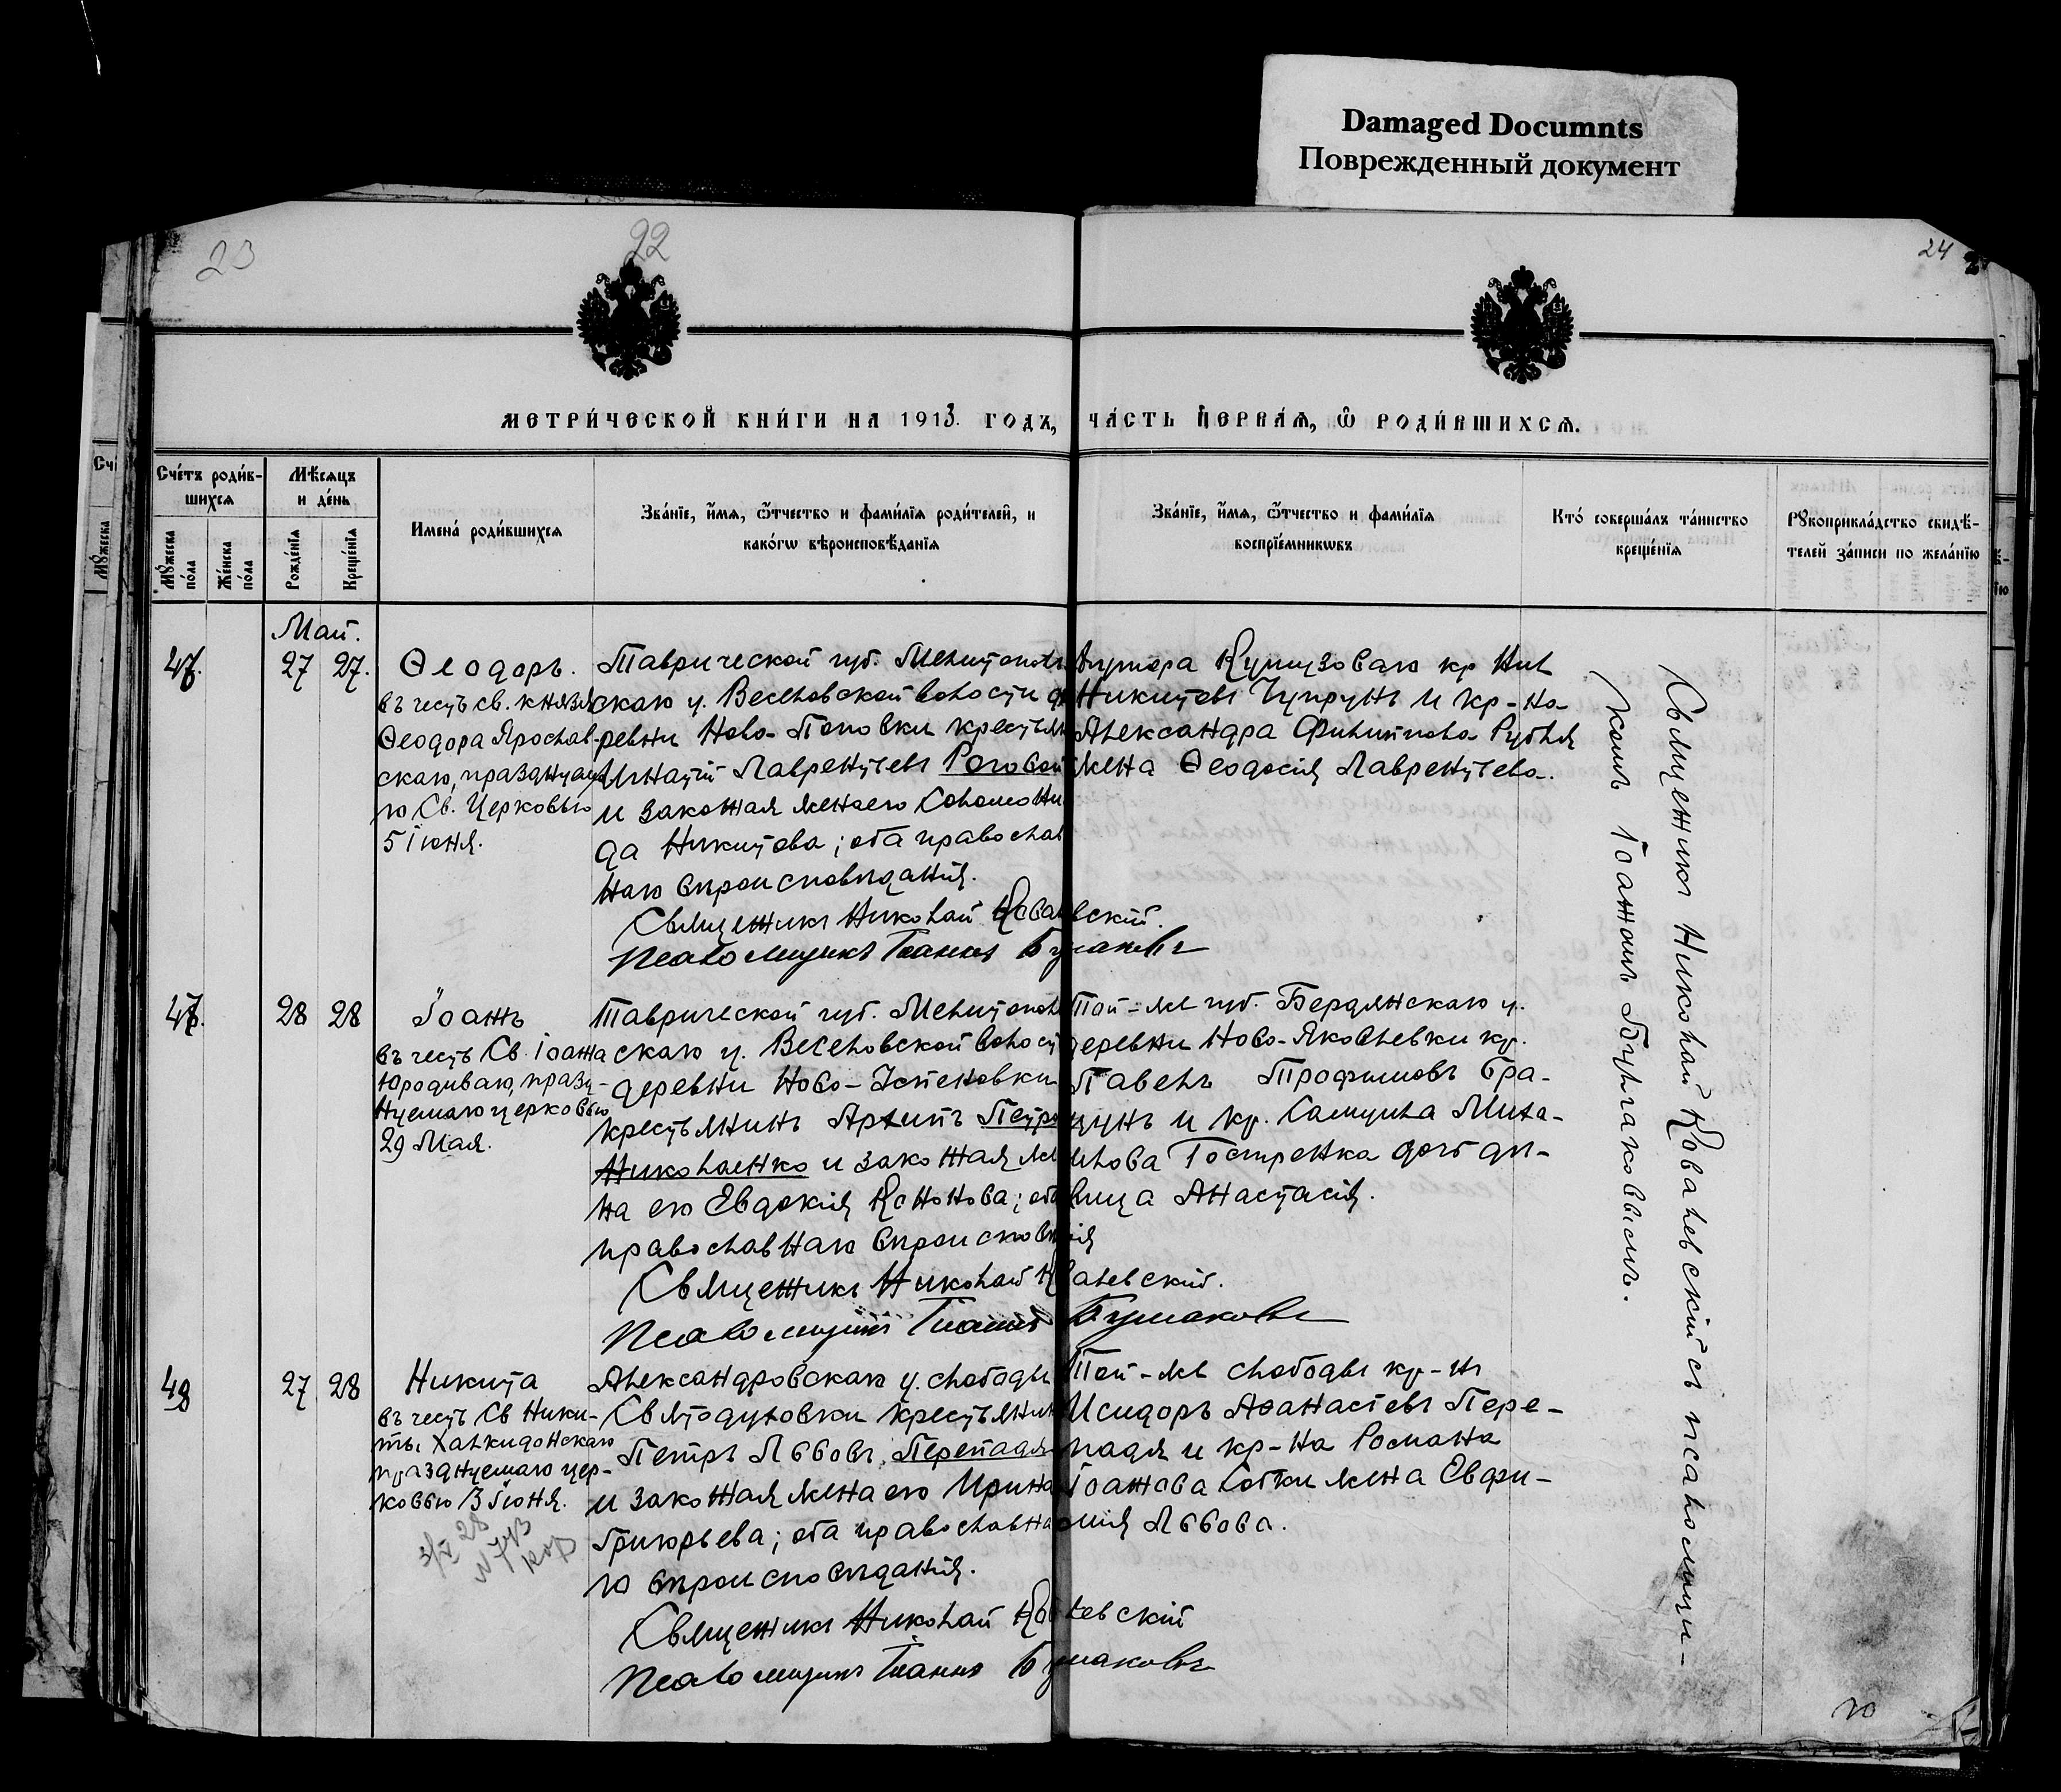 Damaged Documnts
Поврежденный документ
23
22
24
метри́ческой кни́ги на 1913. годъ, ча́сть пе́рваѧ, ѿ роди́вшихсѧ.
Сче́тъ роди́в-
шихсѧ
Мꙋ́жеска по́ла
Же́нска по́ла
Мѣ́сѧцъ
и де́нь
Рожде́нїѧ
Креще́нїѧ
Имена́ роди́вшихсѧ
Зва́нїе, и́мѧ, ѻ҆́тчество и фами́лїѧ роди́телей, и
како́гѡ вѣроисповѣ́данїѧ
Зва́нїе, и́мѧ, ѻ҆́тчество и фами́лїѧ
воспрїе́мникѡвъ
Кто́ соверша́лъ та́инство
креще́нїѧ
Рꙋкоприкла́дство свидѣ́-
телей за́писи по жела́нїю
Май.
27 27.
Ѳеодоръ.
въ честь св. князя
Ѳеодора Ярослав-
скаго, празднуема
го Св. Церковью
5 Іюня.
Таврической губ. Мелитополь
скаго у. Веселовской волости де
ревни Ново-Поповки крестьян
Игнатій Лаврентьевъ Роговой
и законная жена его Соломони
да Никитова; оба православ
наго вѣроисповѣданія.
Священникъ Николай Ковалевскій.
Псаломщикъ Іоаннъ Булгаковъ
хутора Кутузоваго кр
Никитовъ Чупрунъ и кр-на
Александра Филиппова Рубля
жена Ѳеодосія Лаврентьева.
28 28
Іоаннъ
въ честь Св. Іоанна
Юродиваго, празд-
нуемаго церковью
29 Мая.
Таврической губ. Мелитополь
скаго у. Веселовской волости
деревни Ново-Успеновки
крестьянинъ Архипъ Петро
Николаенко и законная же
на его Евдокія Кононова; оба
православнаго вѣроисповѣданія
Священникъ Николай Ковалевскій.
Псаломщикъ Іоаннъ Булгаковъ
Той-же губ. Бердянскаго у.
деревни Ново-Яковлевки кр.
Павелъ Трофимовъ Бра-
цунъ и кр. Самуила Миха-
илова Гостренка дочь дѣ-
вица Анастасія.
48
27 28
Никита
въ честь Св Ники-
ты Халкидонскаго
празднуемаго цер-
ковью 13 Іюня.
Александровскаго у. слободы
Святодуховки крестьянин
Петръ Львовъ Перепадя
и законная жена его Ирина
Григорьева; оба православна
го вѣроисповѣданія.
Священникъ Николай Ковалевскій
Псаломщикъ Іоаннъ Булгаковъ
Той-же слободы кр-нъ
Исидоръ Аѳанасіевъ Пере-
падя и кр-на Романа
Іоаннова Сотки жена Евфи-
мія Львова.
Священникъ Николай Ковалевскій съ псаломщи-
комъ Іоанномъ Булгаковымъ.